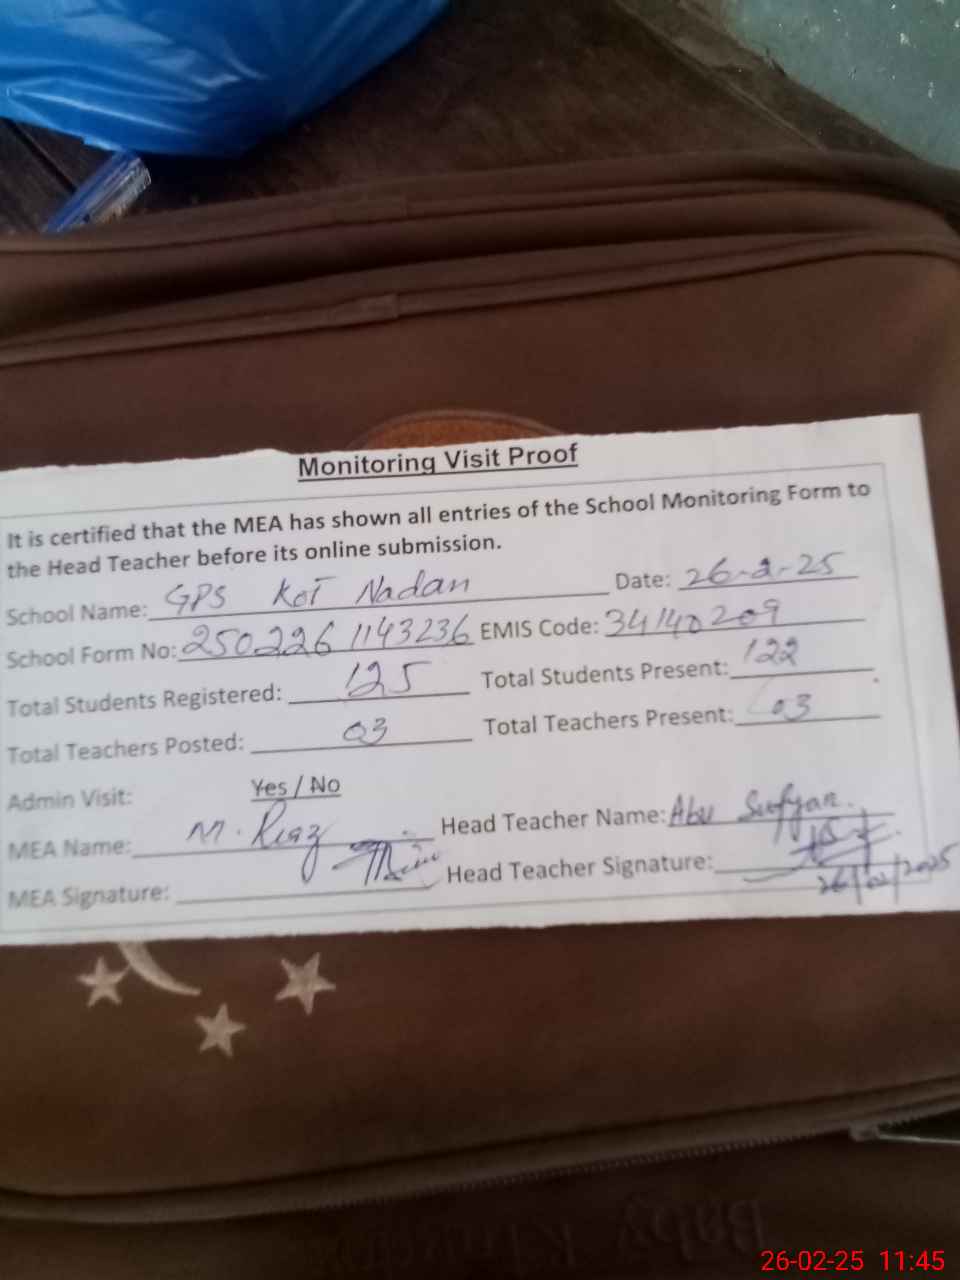 Monitoring Visit Proof
It is certified that the MEA has shown all entries of the School Monitoring Form to
the Head Teacher before its online submission.
School Name: GPS Kot Nadan Date: 26-2-25
School Form No: 250226 1143236 EMIS Code: 34140209
Total Students Registered: 125 Total Students Present: 122
Total Teachers Posted: 03 Total Teachers Present: 03
Admin Visit: Yes / No
MEA Name: M. Riaz Head Teacher Name: Abu Sufyan.
MEA Signature: Head Teacher Signature:
26/02/2025
Baby
26-02-25 11:45